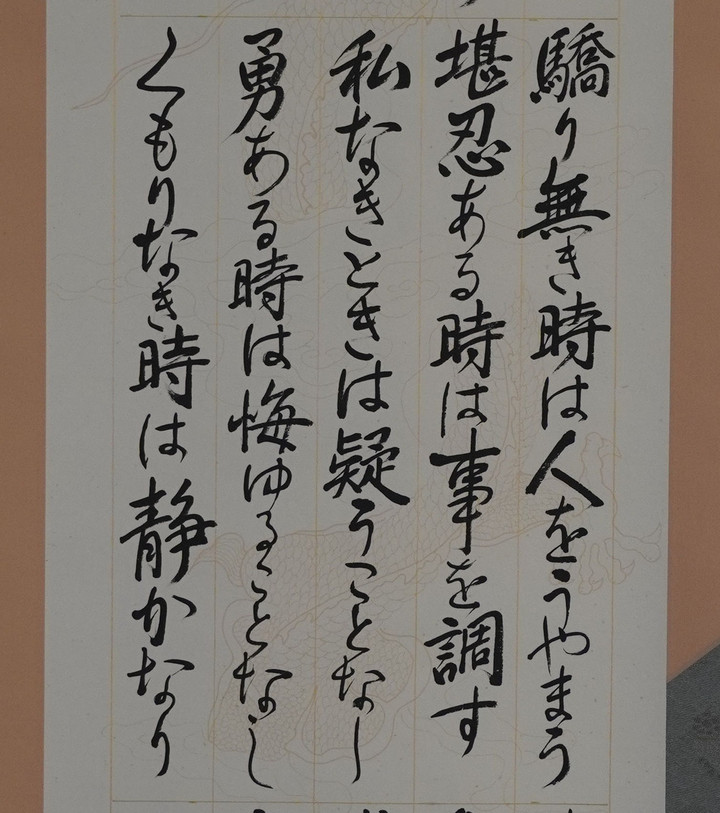 驕り無き時は人をうやまう
堪忍ある時は事を調す
私なきときは疑うことなし
勇ある時は悔ゆることなし
くもりなき時は静かなり